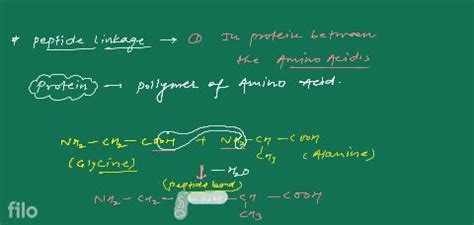 * peptide linkage → ① In protein between
the Amino Acids
Protein → pollymer of Amino Acid.
NH2 - CH2 - COOH + NH2 - CH - COOH
(Glycine) CH3 (Alanine)
-H2O
(peptide bond)
NH2 - CH2 - CH - COOH
CH3
filo